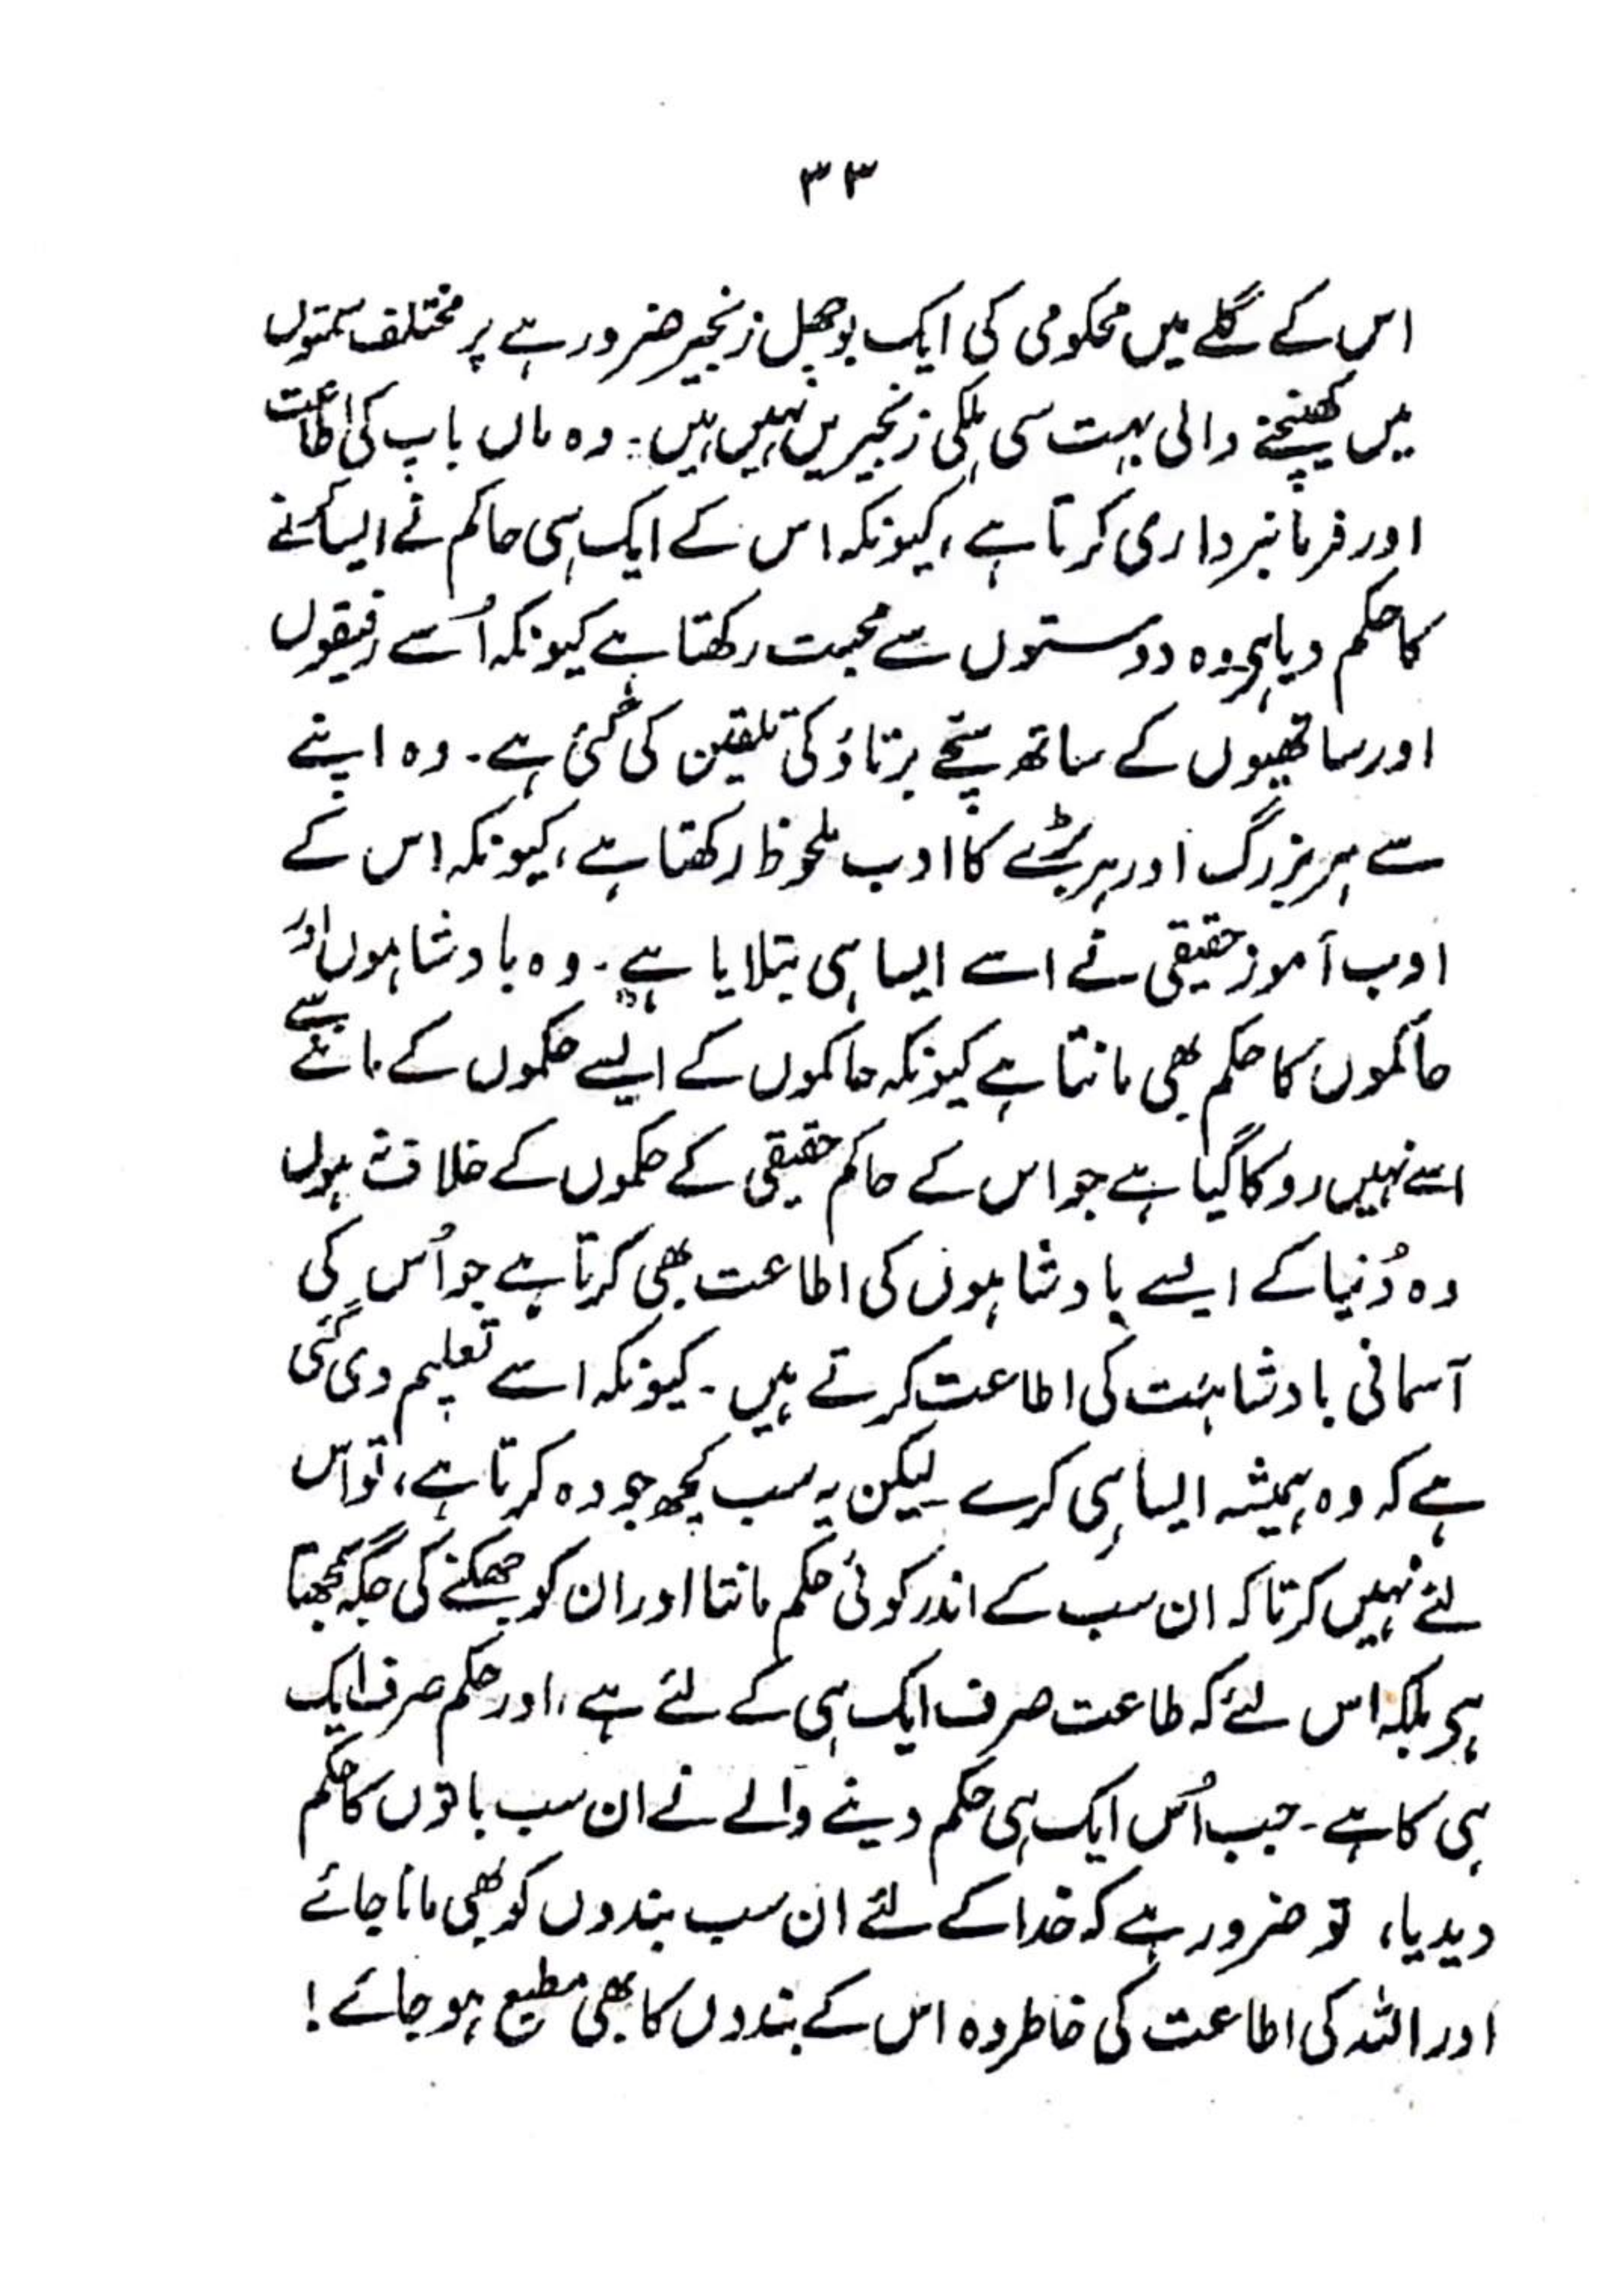 ۳۳
اس کے گلے میں محکومی کی ایک بوجھل زنجیر ضرور ہے پر مختلف سمتوں
میں کھینچنے والی بہت سی ہلکی زنجیریں نہیں ہیں: وہ ماں باپ کی اطاعت
اور فرمانبرداری کرتا ہے، کیونکہ اس کے ایک ہی حاکم نے ایسا کرنے
کا حکم دیا ہی وہ دوستوں سے محبت رکھتا ہے کیونکہ اُسے رفیقوں
اور ساتھیوں کے ساتھ سچّے برتاؤ کی تلقین کی گئی ہے۔ وہ اپنے
سے ہر بزرگ اور ہر بڑے کا ادب ملحوظ رکھتا ہے، کیونکہ اس کے
ادب آموز حقیقی نے اسے ایسا ہی بتلایا ہے۔ وہ بادشاہوں اور
حاکموں کا حکم بھی مانتا ہے کیونکہ حاکموں کے ایسے حکموں کے ماننے سے
اسے نہیں روکا گیا ہے جو اس کے حاکم حقیقی کے حکموں کے خلاف نہ ہوں
وہ دُنیا کے ایسے بادشاہوں کی اطاعت بھی کرتا ہے جو اُس کی
آسمانی بادشاہت کی اطاعت کرتے ہیں۔ کیونکہ اسے تعلیم دی گئی
ہے کہ وہ ہمیشہ ایسا ہی کرے۔ لیکن یہ سب کچھ جو وہ کرتا ہے، تو اس
لئے نہیں کرتا کہ ان سب کے اندر کوئی حکم مانتا اور ان کو جھکنے کی جگہ سمجھتا
ہی بلکہ اس لئے کہ طاعت صرف ایک ہی کے لئے ہے، اور حکم صرف ایک
ہی کا ہے۔ جب اُس ایک ہی حکم دینے والے نے ان سب باتوں کا حکم
دیدیا، تو ضرور ہے کہ خدا کے لئے ان سب بندوں کو بھی مانا جائے
اور اللہ کی اطاعت کی خاطر وہ اس کے بندوں کا بھی مطیع ہو جائے!